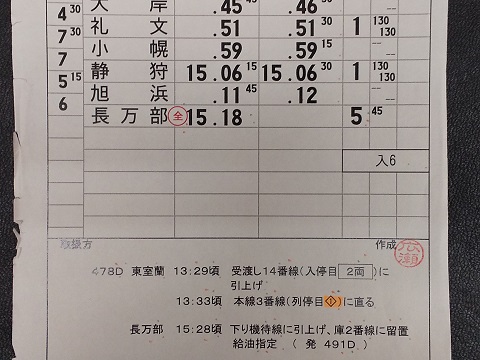 4 30 大岸 .45 45 .46 30
7 30 礼文 .51 30 .51 30 1 130 130
7 小幌 .59 .59 15
5 15 静狩 15.06 15 15.06 30 1 130 130
6 旭浜 .11 45 .12
長万部 全 15.18 5 45
入6
取扱方 作成 広瀬
478D 東室蘭 13:29頃 受渡し14番線(入停目 2両 )に
引上げ
13:33頃 本線3番線(列停目 )に直る
長万部 15:28頃 下り機待線に引上げ、庫2番線に留置
給油指定 ( 発 491D )